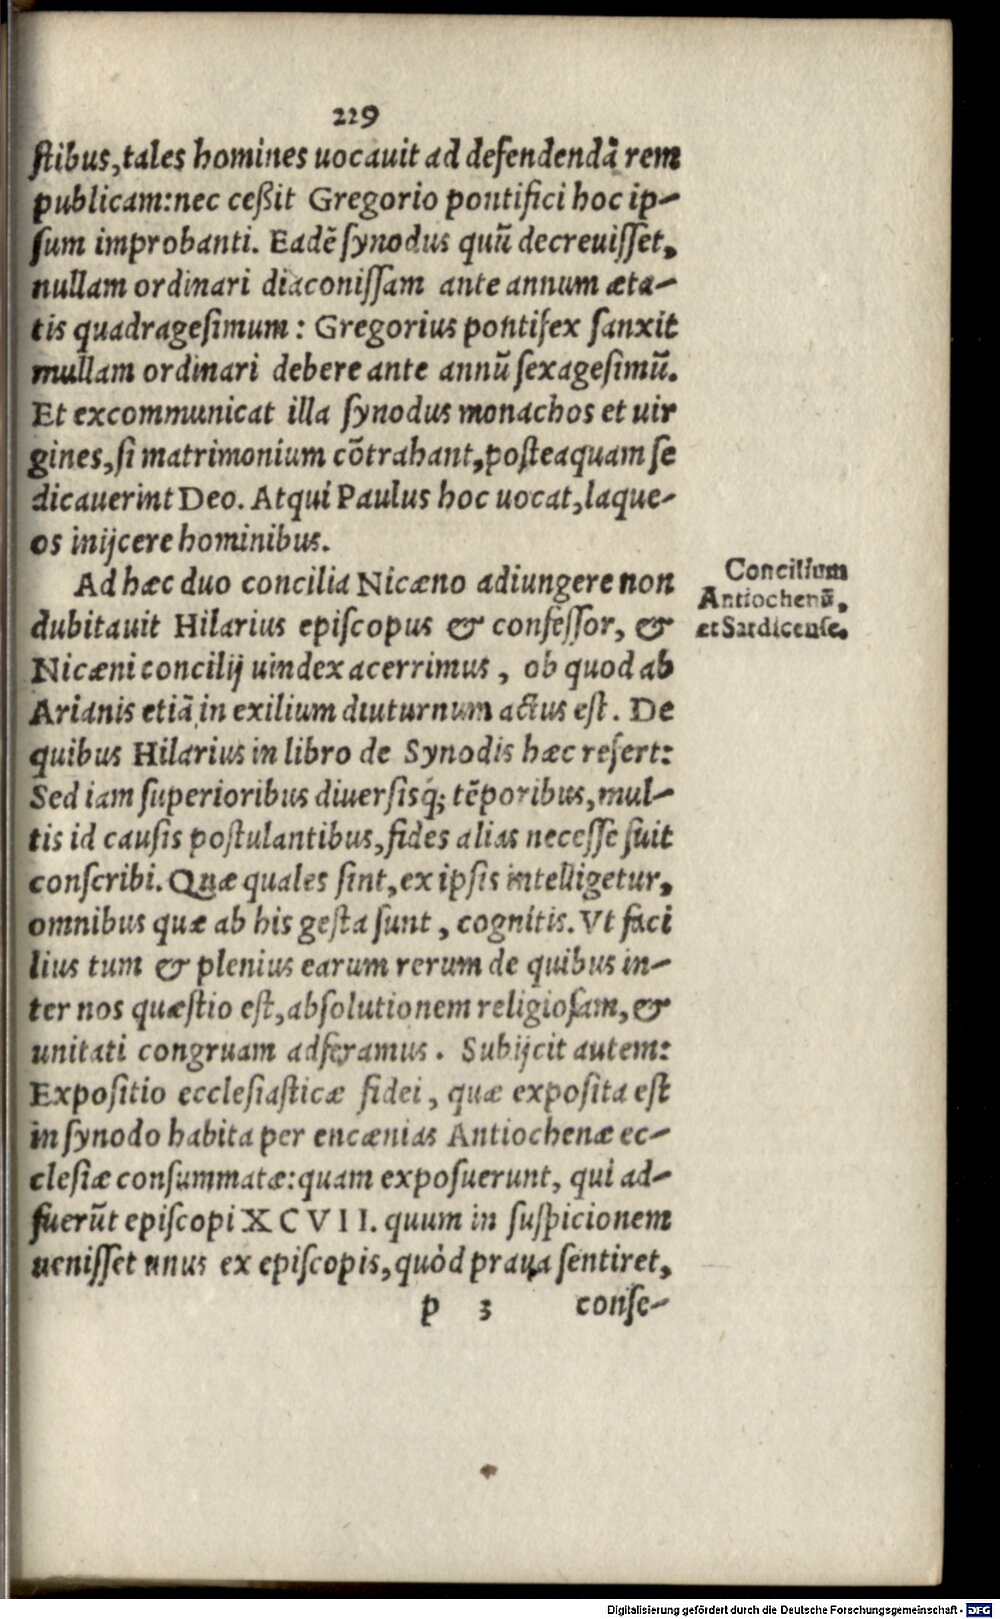 229
ſtibus, tales homines uocauit ad defendendā rem
publicam: nec ceßit Gregorio pontifici hoc ip-
ſum improbanti. Eadē ſynodus quū decreuiſſet,
nullam ordinari diaconiſſam ante annum æta-
tis quadrageſimum: Gregorius pontifex ſanxit
nullam ordinari debere ante annū ſexageſimū.
Et excommunicat illa ſynodus monachos et uir
gines, ſi matrimonium cōtrahant, poſteaquam ſe
dicauerint Deo. Atqui Paulus hoc uocat, laque-
os inijcere hominibus.
Ad hæc duo concilia Nicæno adiungere non
dubitauit Hilarius epiſcopus & confeſſor, &
Nicæni concilij uindex acerrimus, ob quod ab
Arianis etiā in exilium diuturnum actus eſt. De
quibus Hilarius in libro de Synodis hæc refert:
Sed iam ſuperioribus diuerſisq́; tēporibus, mul-
tis id cauſis poſtulantibus, fides alias neceſſe fuit
conſcribi. Quæ quales ſint, ex ipſis intelligetur,
omnibus quæ ab his geſta ſunt, cognitis. Vt faci
lius tum & plenius earum rerum de quibus in-
ter nos quæſtio eſt, abſolutionem religioſam, &
unitati congruam adferamus. Subijcit autem:
Expoſitio eccleſiaſticæ fidei, quæ expoſita eſt
in ſynodo habita per encænias Antiochenæ ec-
cleſiæ conſummatæ: quam expoſuerunt, qui ad-
fuerūt epiſcopi XCVII. quum in ſuſpicionem
ueniſſet unus ex epiſcopis, quòd praua ſentiret,
p 3 conſe-
Concilium
Antiochenū,
et Sardicenſe.
Digitalisierung gefördert durch die Deutsche Forschungsgemeinschaft - DFG